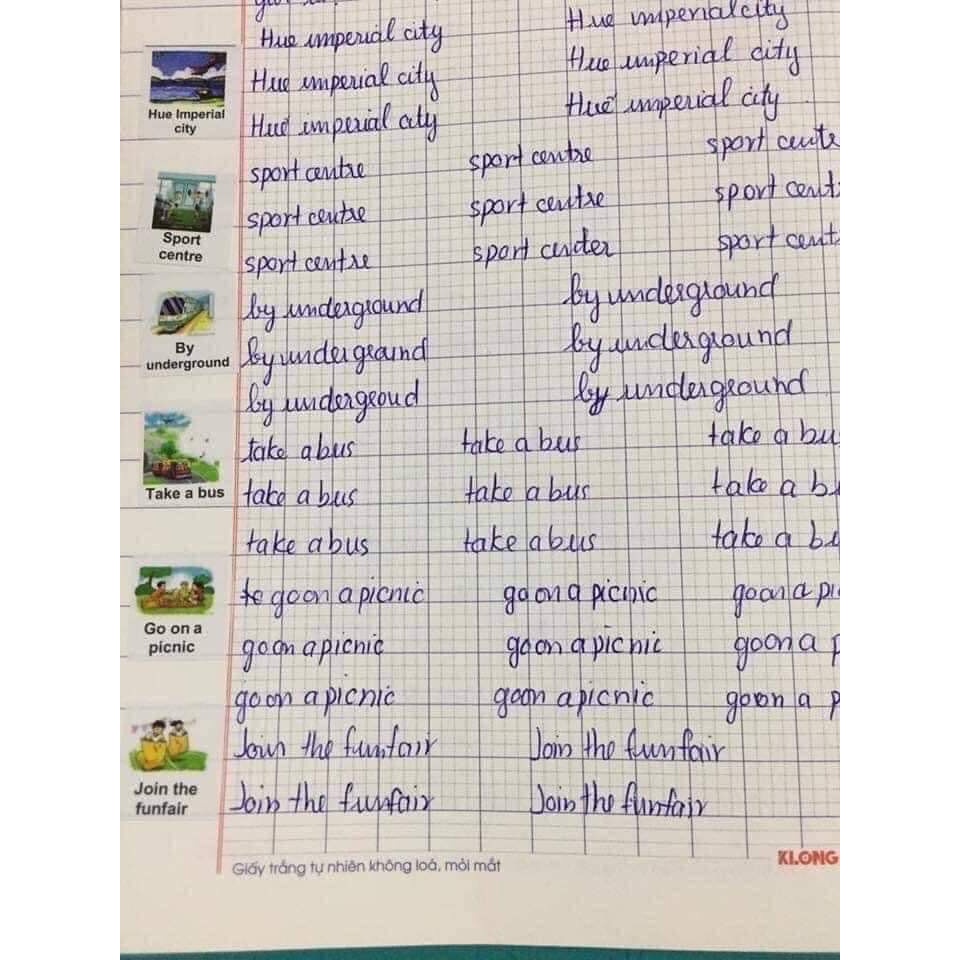 Hue imperial city Hue imperial city
Hue imperial city Hue imperial city
Hue Imperial
city
Hue imperial city Hue imperial city
sport centre sport centre sport centr
sport centre sport centre sport cent
Sport
centre
sport centre sport center sport cent
by underground by underground
By
underground
by underground by underground
by undergroud by underground
take a bus take a bus take a bu
Take a bus
take a bus take a bus take a b
take a bus take a bus take a bu
te go on a picnic go on a picnic go on a pi
Go on a
picnic
go on a picnic go on a picnic go on a p
go on a picnic go on a picnic go on a p
Join the funfair Join the funfair
Join the
funfair
Join the funfair Join the funfair
Giấy trắng tự nhiên không loá, mỏi mắt
KLONG